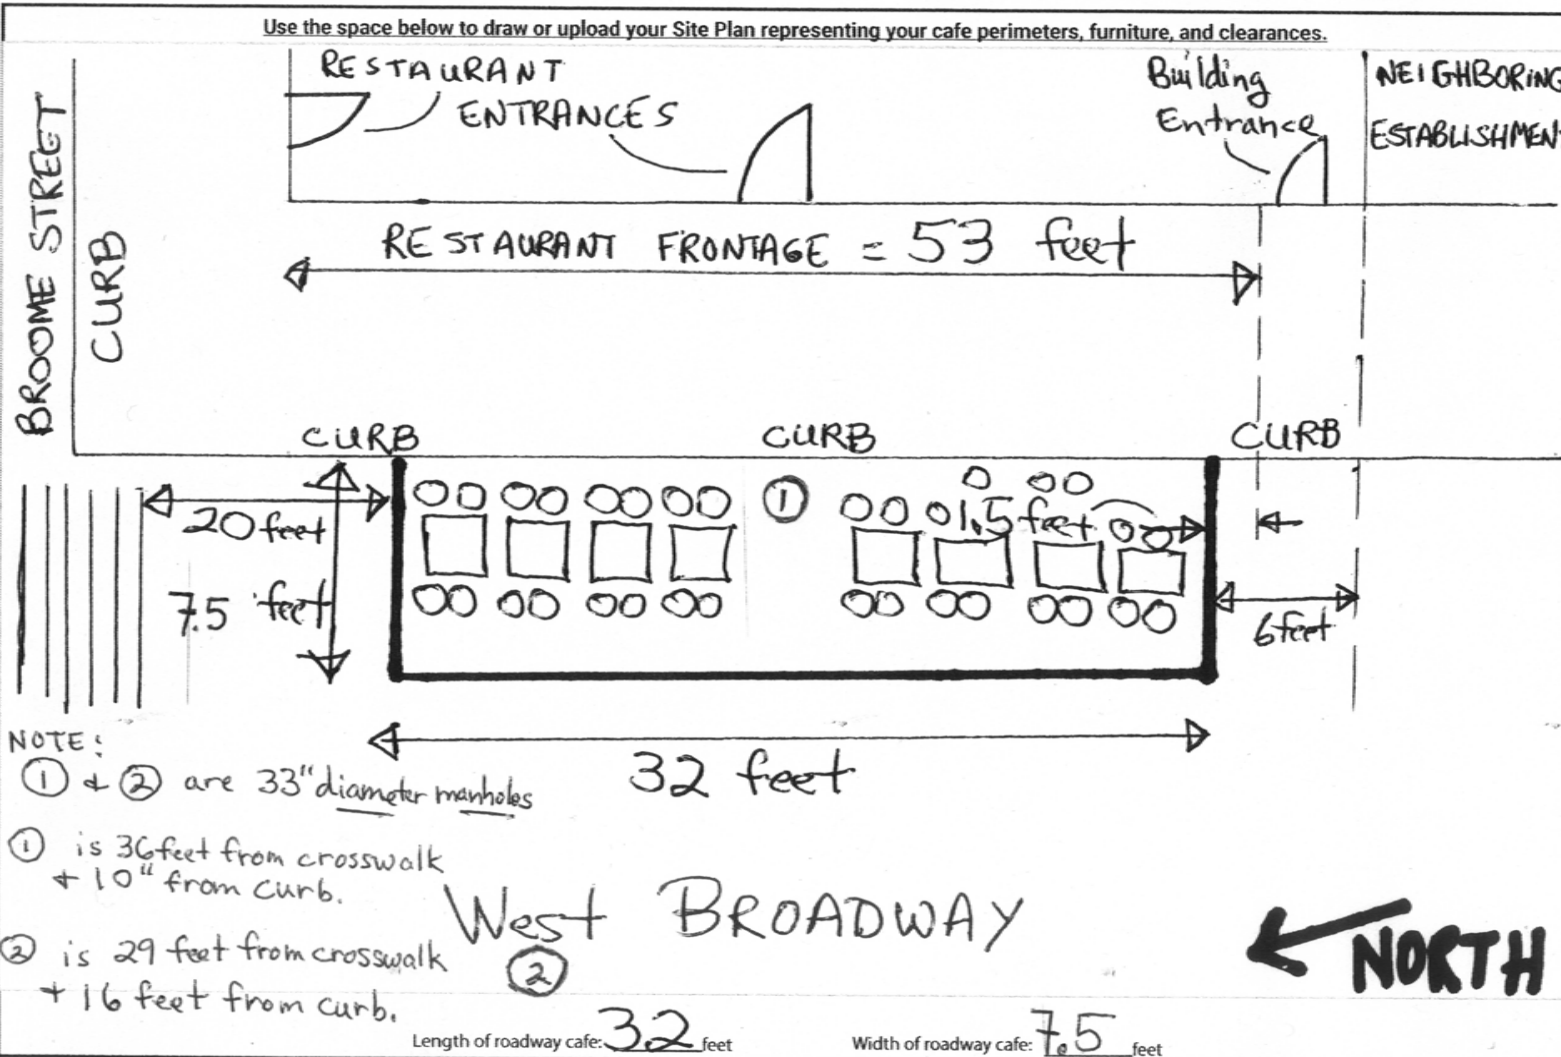 Use the space below to draw or upload your Site Plan representing your cafe perimeters, furniture, and clearances.
RESTAURANT
ENTRANCES
Building
Entrance
NEIGHBORING
ESTABLISHMENT
BROOME STREET
CURB
RESTAURANT FRONTAGE = 53 feet
CURB
CURB
CURB
20 feet
1
1.5 feet
7.5 feet
6 feet
32 feet
NOTE:
1 + 2 are 33" diameter manholes
1 is 36 feet from crosswalk
+ 10" from curb.
West BROADWAY
2
2 is 29 feet from crosswalk
+ 16 feet from curb.
NORTH
Length of roadway cafe: 32 feet
Width of roadway cafe: 7.5 feet